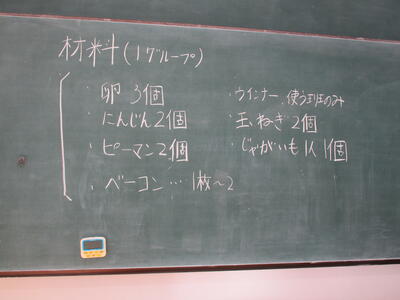 材料(1グループ)
・卵 3個
・にんじん2個
・ピーマン2個
・ベーコン…1枚~2
・ウインナー、使う班のみ
・玉ねぎ2個
・じゃがいも1人1個